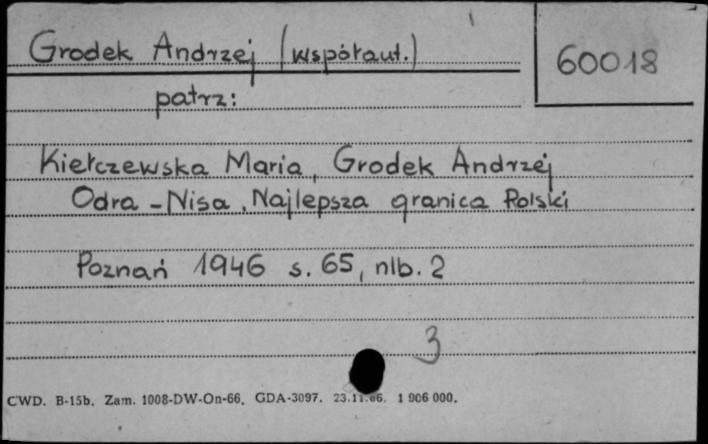 Grodek Andrzej (współaut.)
60018
patrz:
Kiełczewska Maria, Grodek Andrzej
Odra - Nisa, Najlepsza granica Polski
Poznań 1946 s. 65, nlb. 2
3
CWD. B-15b. Zam. 1008-DW-On-66. GDA-3097. 23.11.66. 1 906 000.